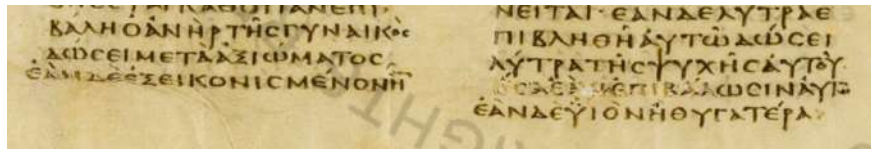 ΒΑΛΗΟΑΝΗΡΤΗϹΓΥΝΑΙΚΟϹ
ΔΩϹΕΙΜΕΤΑΑΞΙΩΜΑΤΟϹ
ΕΑΝΔΕΕΞΕΙΚΟΝΙϹΜΕΝΟΝΗ
ΝΕΙΤΑΙ·ΕΑΝΔΕΛΥΤΡΑΕ
ΠΙΒΛΗΘΗΑΥΤΩΔΩϹΕΙ
ΛΥΤΡΑΤΗϹΨΥΧΗϹΑΥΤΟΥ
ΕΑΝΔΕΥΙΟΝΗΘΥΓΑΤΕΡΑ